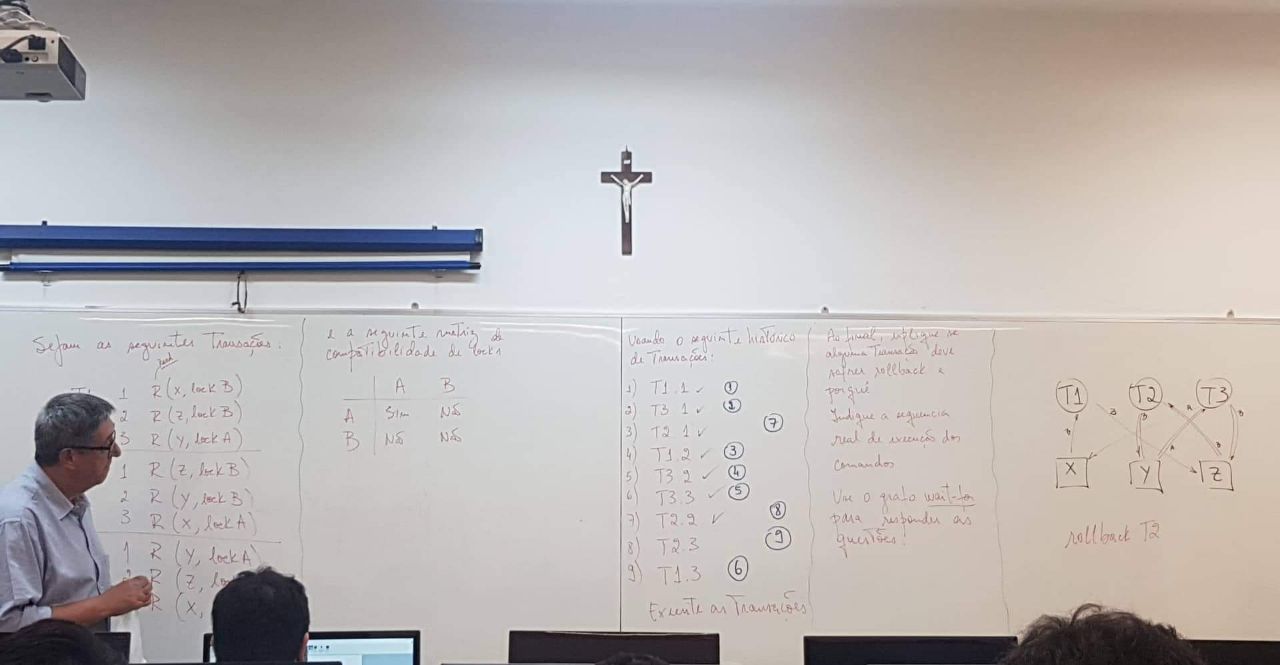 Sejam as seguintes Transações:
read
1 R(X, lock B)
2 R(Z, lock B)
3 R(Y, lock A)
1 R(Z, lock B)
2 R(Y, lock B)
3 R(X, lock A)
1 R(Y, lock A)
R(Z,
R(X,
e a seguinte matriz de
compatibilidade de locks
A B
A Sim Não
B Não Não
Usando o seguinte histórico
de Transações:
1) T1.1 ✓ 1
2) T3.1 ✓ 2
3) T2.1 ✓ 7
4) T1.2 ✓ 3
5) T3.2 ✓ 4
6) T3.3 ✓ 5
7) T2.2 ✓ 8
8) T2.3 9
9) T1.3 6
Execute as Transações
Ao final, explique se
alguma Transação deve
sofrer rollback e
porquê
Indique a sequencia
real de execução dos
comandos
Use o grafo wait-for
para responder as
questões!
T1 T2 T3
B B A B
B A B
X Y Z
rollback T2